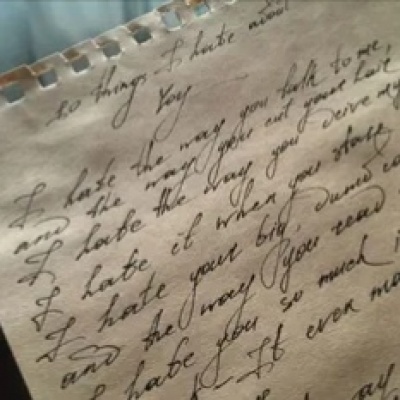 10 things I hate about
You
I hate the way you talk to me,
and the way you cut your hair
I hate the way you drive my
I hate it when you stare
I hate your big, dumb co
and the way you read
I hate you so much i
It even ma